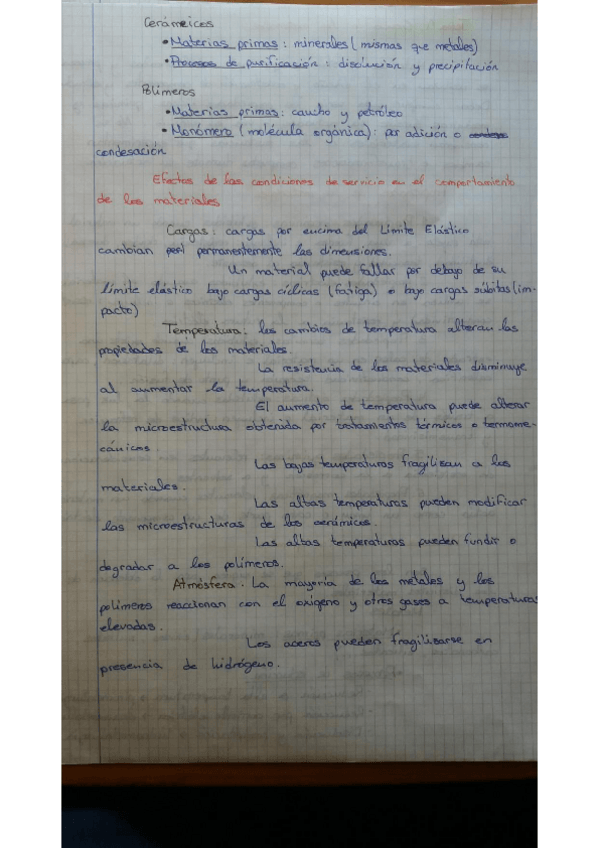 Cerámeicos
• Materias primas: minerales (mismas que metales)
• Procesos de purificación: disolución y precipitación
Polímeros
• Materias primas: caucho y petróleo
• Monómero (molécula orgánica): por adición o
condesación
Efectos de las condiciones de servicio en el comportamiento
de los materiales
Cargas: cargas por encima del Límite Elástico
cambian permanentemente las dimensiones.
Un material puede fallar por debajo de su
límite elástico bajo cargas cíclicas (fatiga) o bajo cargas súbitas (im-
pacto)
Temperatura: los cambios de temperatura alteran las
propiedades de los materiales.
La resistencia de los materiales disminuye
al aumentar la temperatura.
El aumento de temperatura puede alterar
la microestructura obtenida por tratamientos térmicos o termome-
cánicos.
Las bajas temperaturas fragilizan a los
materiales.
Las altas temperaturas pueden modificar
las microestructuras de los cerámicos.
Las altas temperaturas pueden fundir o
degradar a los polímeros.
Atmósfera. La mayoría de los metales y los
polímeros reaccionan con el oxígeno y otros gases a temperaturas
elevadas.
Los aceros pueden fragilizarse en
presencia de hidrógeno.